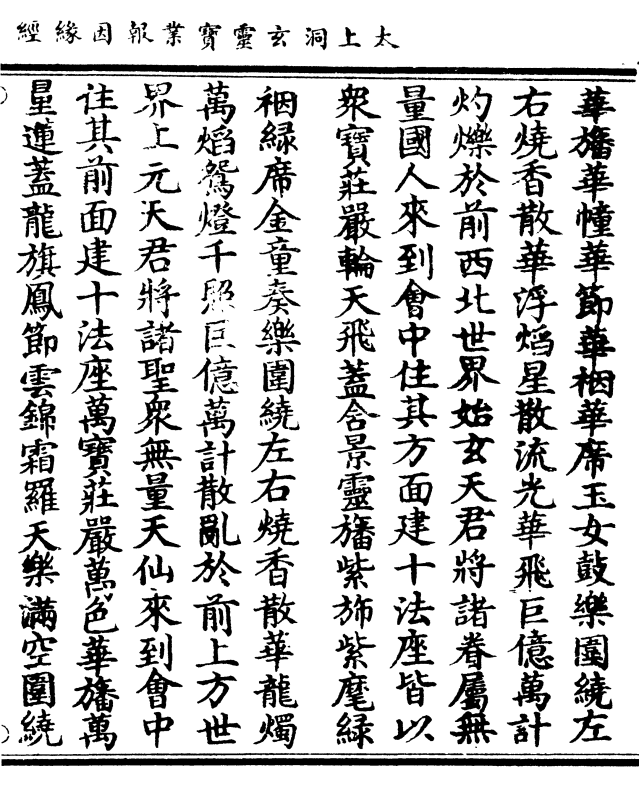 太上洞玄靈寶業報因緣經
華旛華幢華節華裀華席玉女鼓樂圍繞左
右燒香散華浮焰星散流光華飛巨億萬計
灼爍於前西北世界始玄天君將諸眷屬無
量國人來到會中住其方面建十法座皆以
衆寶莊嚴輪天飛蓋含景靈旛紫斾紫麾綠
裀綠席金童奏樂圍繞左右燒香散華龍燭
萬焰鴛燈千照巨億萬計散亂於前上方世
界上元天君將諸聖衆無量天仙來到會中
住其前面建十法座萬寶莊嚴萬色華旛萬
星蓮蓋龍旗鳳節雲錦霜羅天樂滿空圍繞